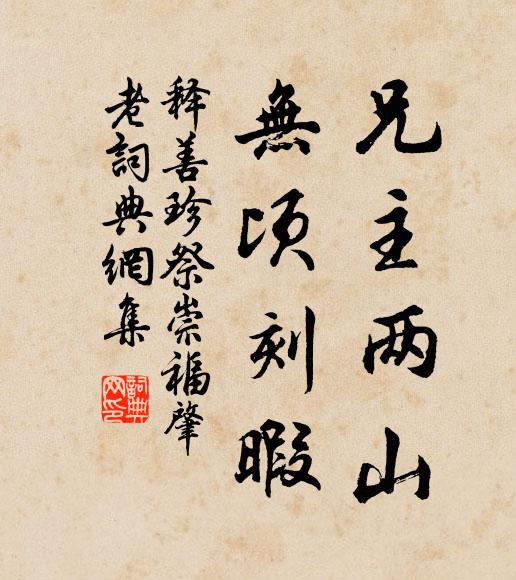 兄主两山
無頃刻暇
释善珍祭崇福肇
老詞典網集
詞典
网印